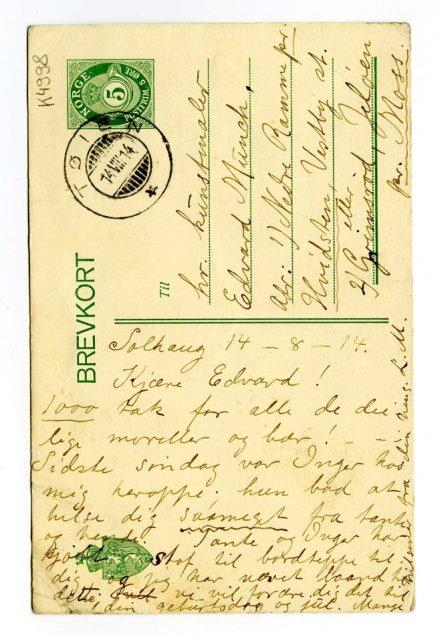 K4998
NORGE
5
FRIM. 5 ØRE
TØIEN
14 VIII 14
BREVKORT
Til
hr. kunstmaler
Edvard Munch,
adr: 1) Nedre Ramme pr.
Hvidsten, Vestby st.
eller
2) Grimsrød, Jeløen
pr. Moss.
Solhaug 14 – 8 – 14.
Kjære Edvard!
1000 tak for alle de dei-
lige moreller og bær! – –
Sidste søndag var Inger hos
mig heroppe. hun bad at
hilse dig saameget fra tante
og hende. Tante og Inger har
kjøbt stof til bordteppe til
dig og jeg har vævet
dette. vi vil forære dig det til
din geburtsdag og jul. Mange
hilsener fra din heng. L. M.